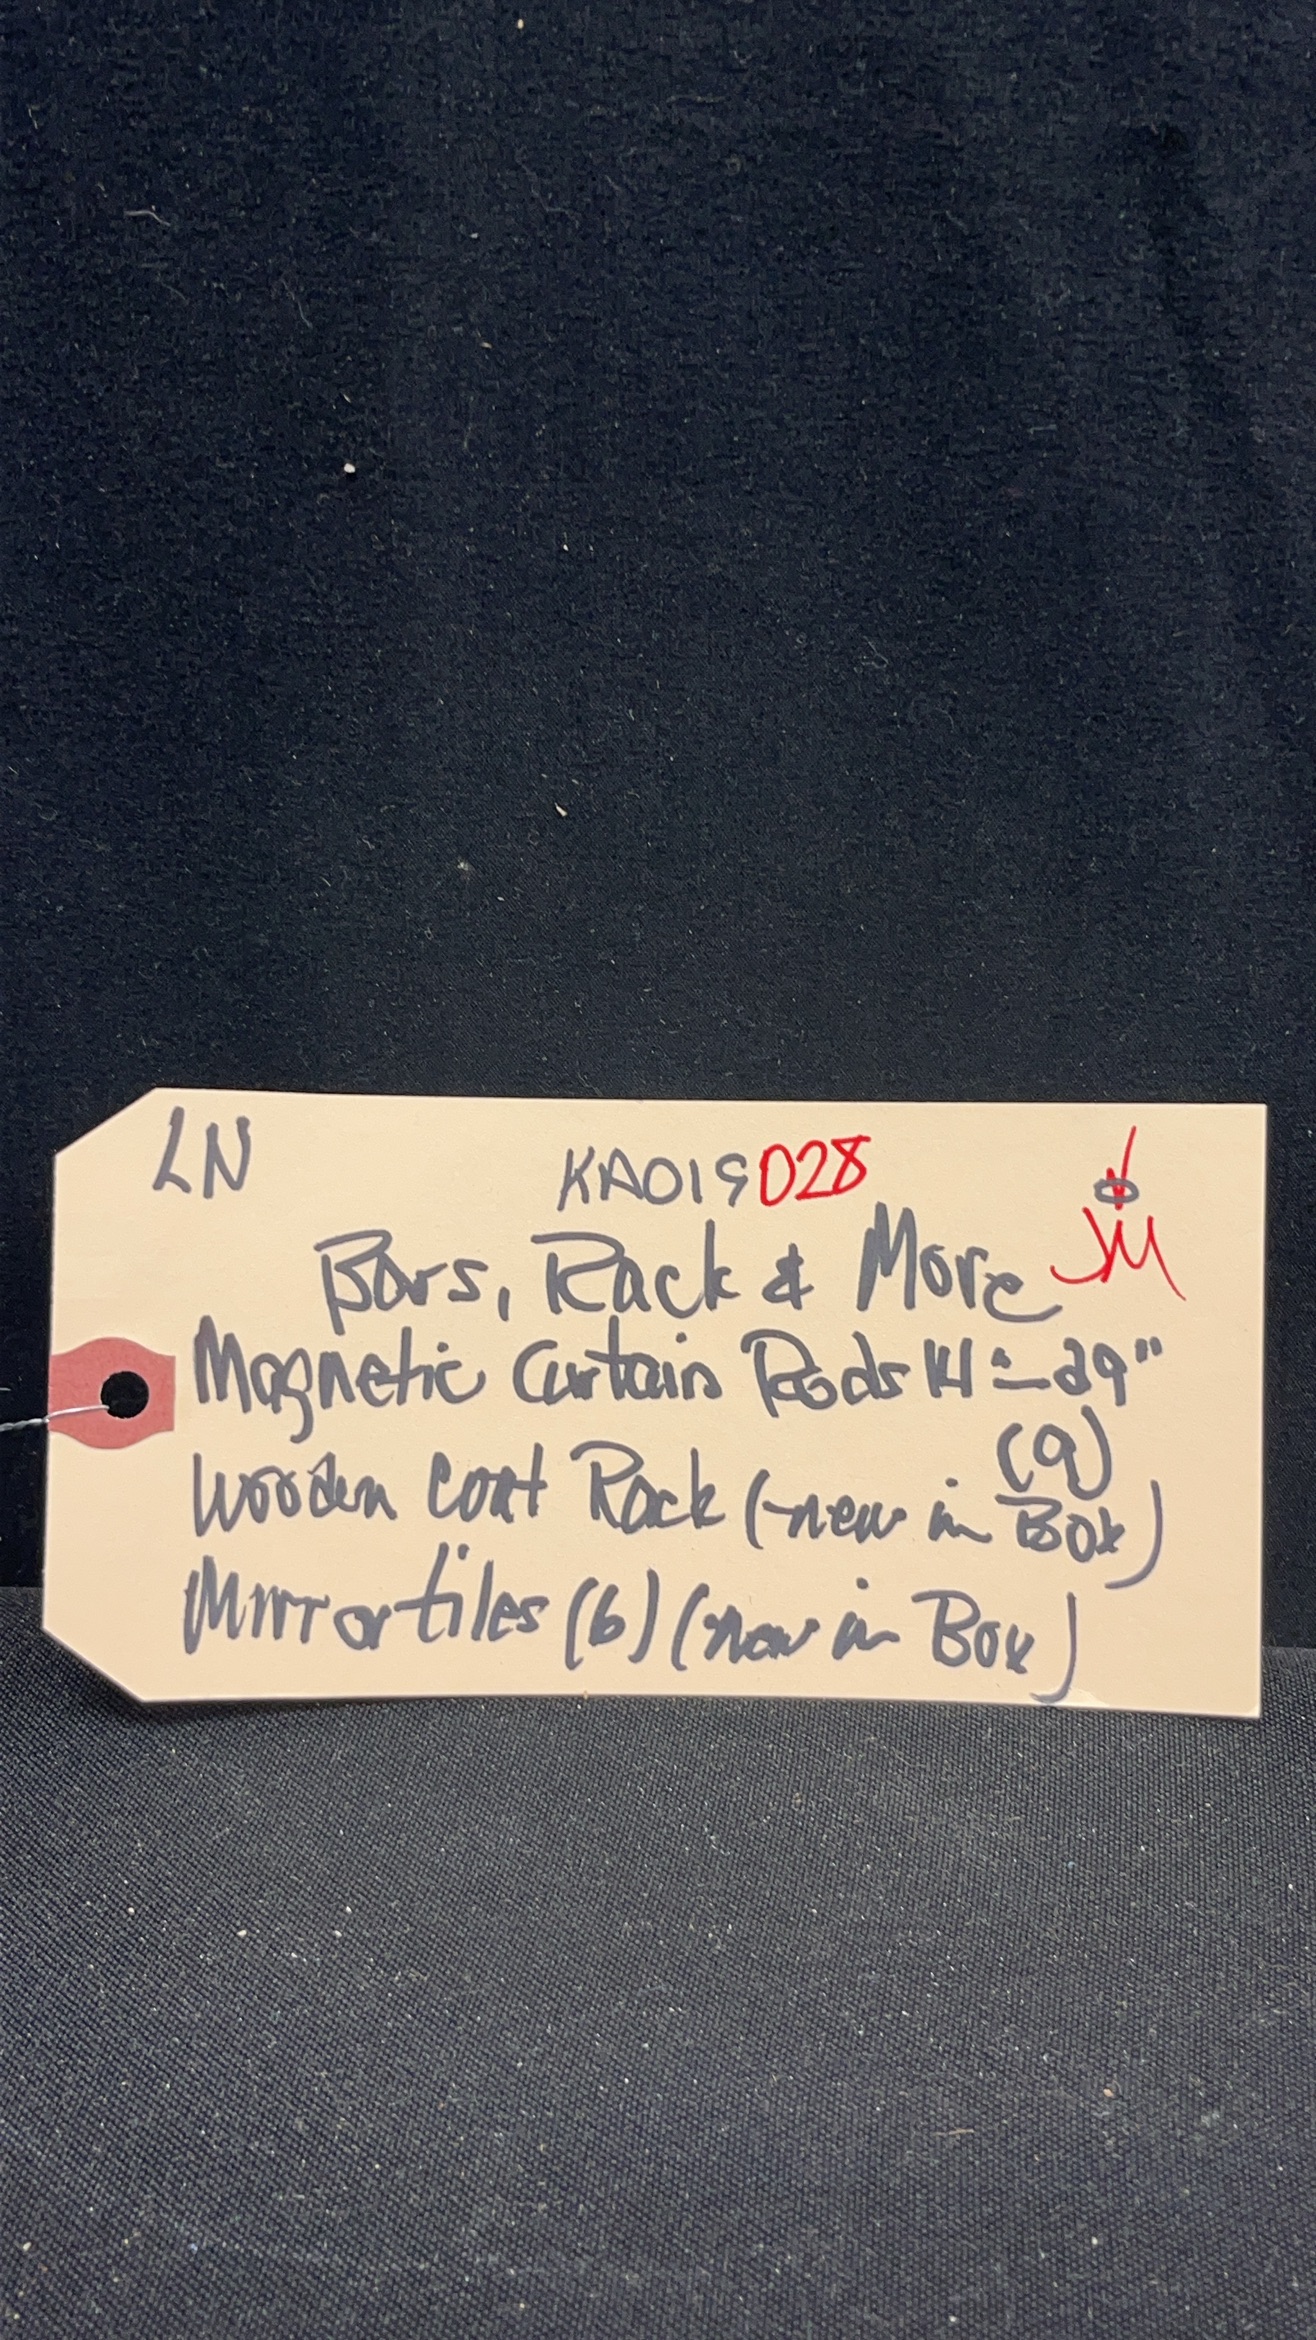 LN
KA019028
JM
Bars, Rack & More
Magnetic Curtain Rods 14"-29"
(9)
Wooden Coat Rack (new in Box)
Mirror tiles (6) (new in Box)